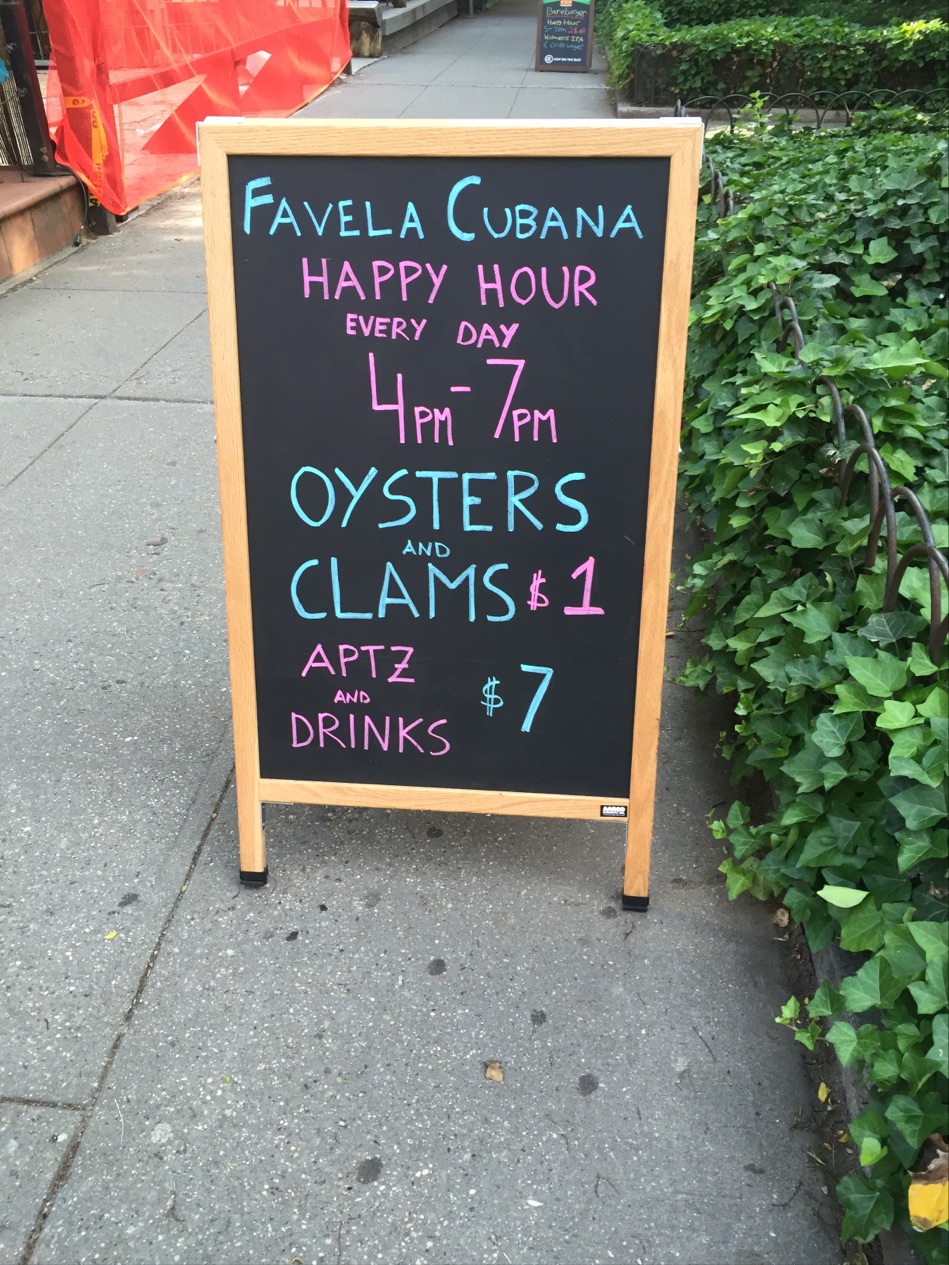 Bareburger
Happy Hour
5-7pm
FAVELA CUBANA
HAPPY HOUR
EVERY DAY
4PM-7PM
OYSTERS
AND
CLAMS $1
APTZ
AND $7
DRINKS